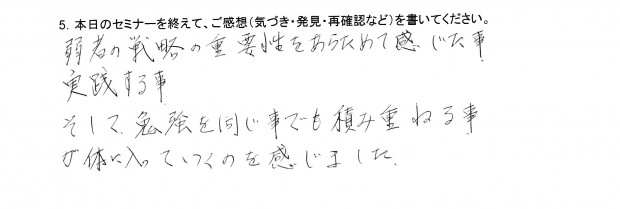 5. 本日のセミナーを終えて、ご感想(気づき・発見・再確認など)を書いてください。
弱者の戦略の重要性をあらためて感じた事
実践する事
そして、勉強を同じ事でも積み重ねる事
が体に入っていくのを感じました.